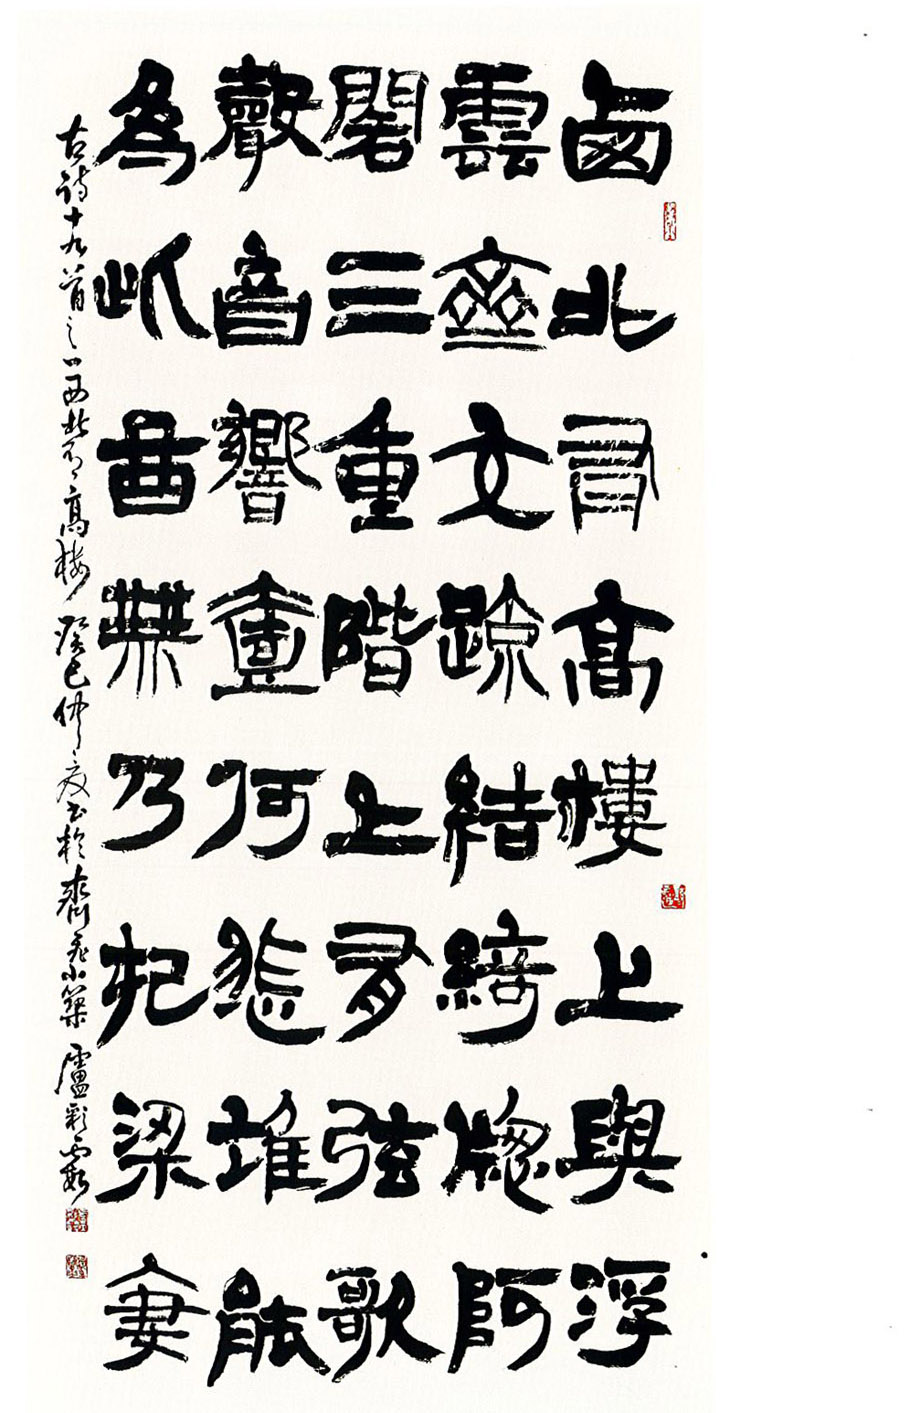 西北有高樓上與浮
雲齊文疏結綺窗阿
閣三重階上有弦歌
聲音響壹何悲誰能
為此曲無乃杞梁妻
古詩十九首之一西北有高樓癸巳仲夏書於齊飛小築盧彩霞